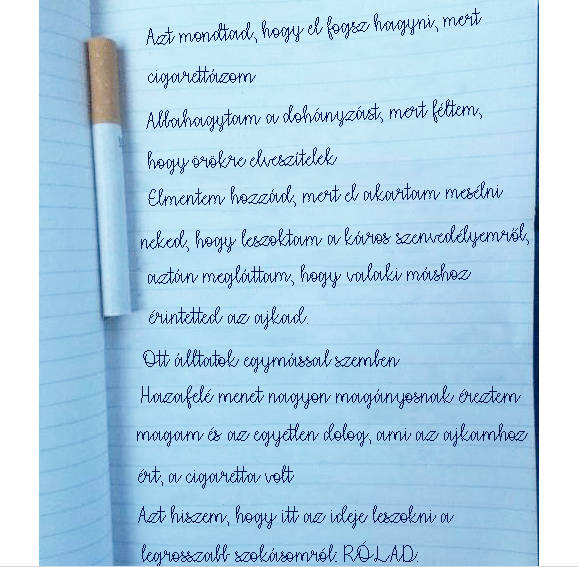 Azt mondtad, hogy el fogsz hagyni, mert
cigarettázom
Abbahagytam a dohányzást, mert féltem,
hogy örökre elveszítelek
Elmentem hozzád, mert el akartam mesélni
neked, hogy leszoktam a káros szenvedélyemről,
aztán megláttam, hogy valaki máshoz
érintetted az ajkad.
Ott álltatok egymással szemben
Hazafelé menet nagyon magányosnak éreztem
magam és az egyetlen dolog, ami az ajkamhoz
ért, a cigaretta volt
Azt hiszem, hogy itt az ideje leszokni a
legrosszabb szokásomról. RÓLAD.